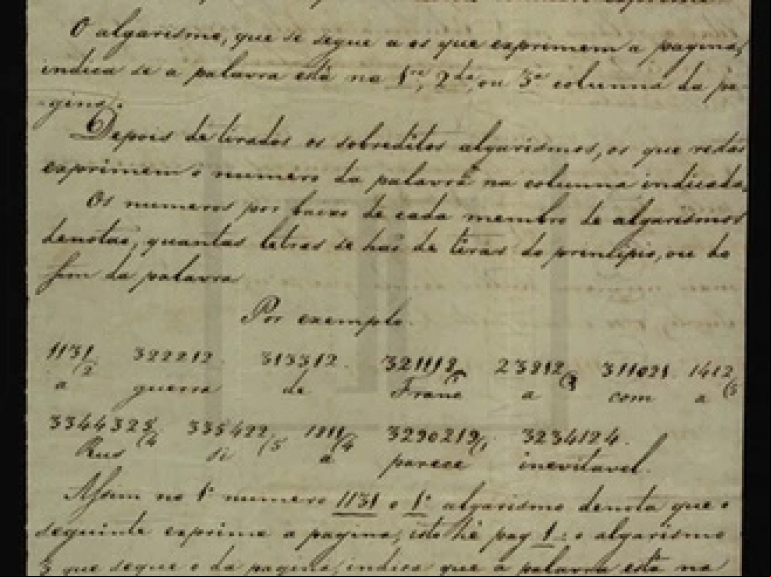 O algarismo, que se segue a os que exprimem a pagina,
indica se a palavra está na 1ra, 2da, ou 3a columna da pa-
gina.
Depois de tirados os sobreditos algarismos, os que restão
exprimem o numero da palavra na columna indicada.
Os numeros por baixo de cada membro de algarismos
denotão, quantas letras se hão de tirar do principio, ou do
fim da palavra
Por exemplo.
1131/2 322212. 313312. 321118 23212 311021. 1412
a guerra de Franc a com a
3344325/4 335422/5 1811/4 3290219/1 3234124.
Rus si a parece inevitavel.
Assim no 1o numero 1131 o 1o algarismo denota que o
seguinte exprime a pagina, isto hé pag 1: o algarismo
3 que segue o da pagina, indica que a palavra está na